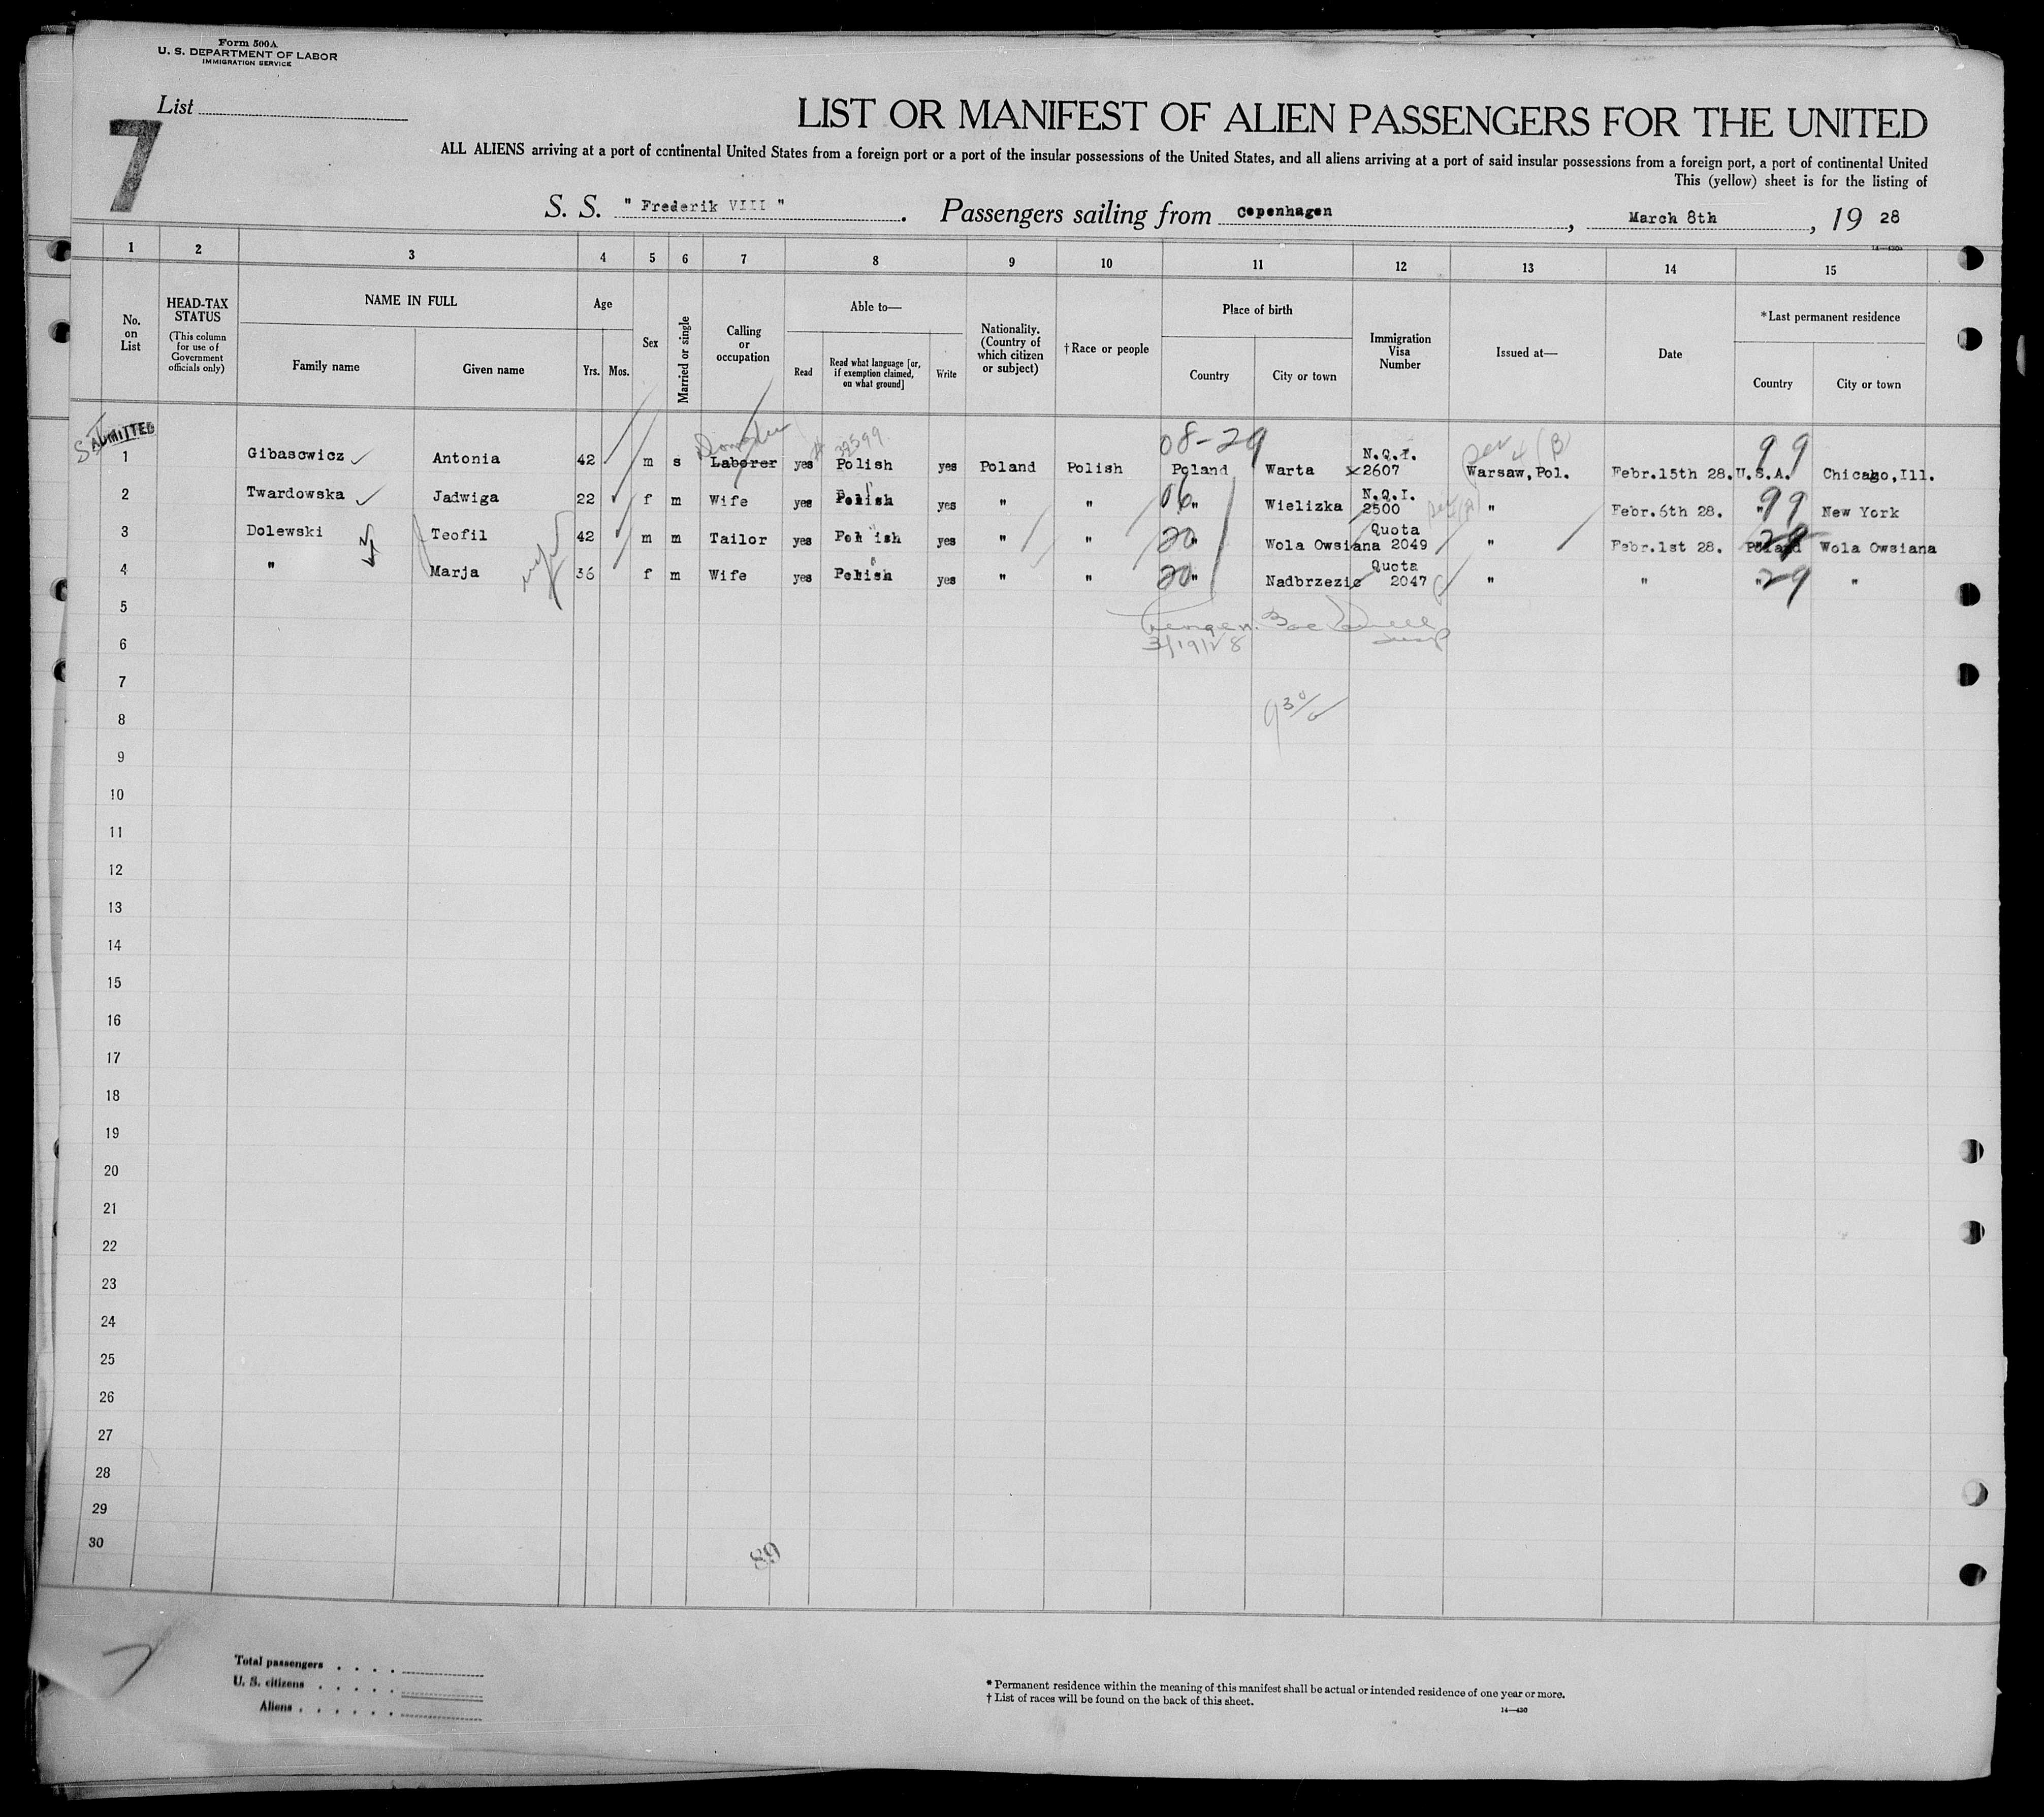 Form 500A
U. S. DEPARTMENT OF LABOR
IMMIGRATION SERVICE
List
7
LIST OR MANIFEST OF ALIEN PASSENGERS FOR THE UNITED
ALL ALIENS arriving at a port of continental United States from a foreign port or a port of the insular possessions of the United States, and all aliens arriving at a port of said insular possessions from a foreign port, a port of continental United
This (yellow) sheet is for the listing of
S. S. " Frederik VIII " . Passengers sailing from Copenhagen , March 8th , 19 28
14—430a
1 2 3 4 5 6 7 8 9 10 11 12 13 14 15
No. on List
HEAD-TAX STATUS
(This column for use of Government officials only)
NAME IN FULL
Family name
Given name
Age
Yrs. Mos.
Sex
Married or single
Calling or occupation
Able to—
Read
Read what language [or, if exemption claimed, on what ground]
Write
Nationality. (Country of which citizen or subject)
†Race or people
Place of birth
Country
City or town
Immigration Visa Number
Issued at—
Date
*Last permanent residence
Country
City or town
ADMITTED
08-29
99
1 Gibasowicz Antonia 42 m s Laborer yes Polish yes Poland Polish Poland Warta N.Q.I. 2607 Warsaw, Pol. Febr.15th 28. U.S.A. Chicago, Ill.
2 Twardowska Jadwiga 22 f m Wife yes Polish yes " " 06 " Wielizka N.Q.I. 2500 " Febr.6th 28. " 99 New York
3 Dolewski Teofil 42 m m Tailor yes Polish yes " " 20 " Wola Owsiana Quota 2049 " Febr.1st 28. Poland 29 Wola Owsiana
4 " Marja 36 f m Wife yes Polish yes " " 20 " Nadbrzezie Quota 2047 " " " 29 "
5
6
3/19/28
7
8
9
10
11
12
13
14
15
16
17
18
19
20
21
22
23
24
25
26
27
28
29
30
89
Total passengers
U. S. citizens
Aliens
* Permanent residence within the meaning of this manifest shall be actual or intended residence of one year or more.
† List of races will be found on the back of this sheet.
14—430